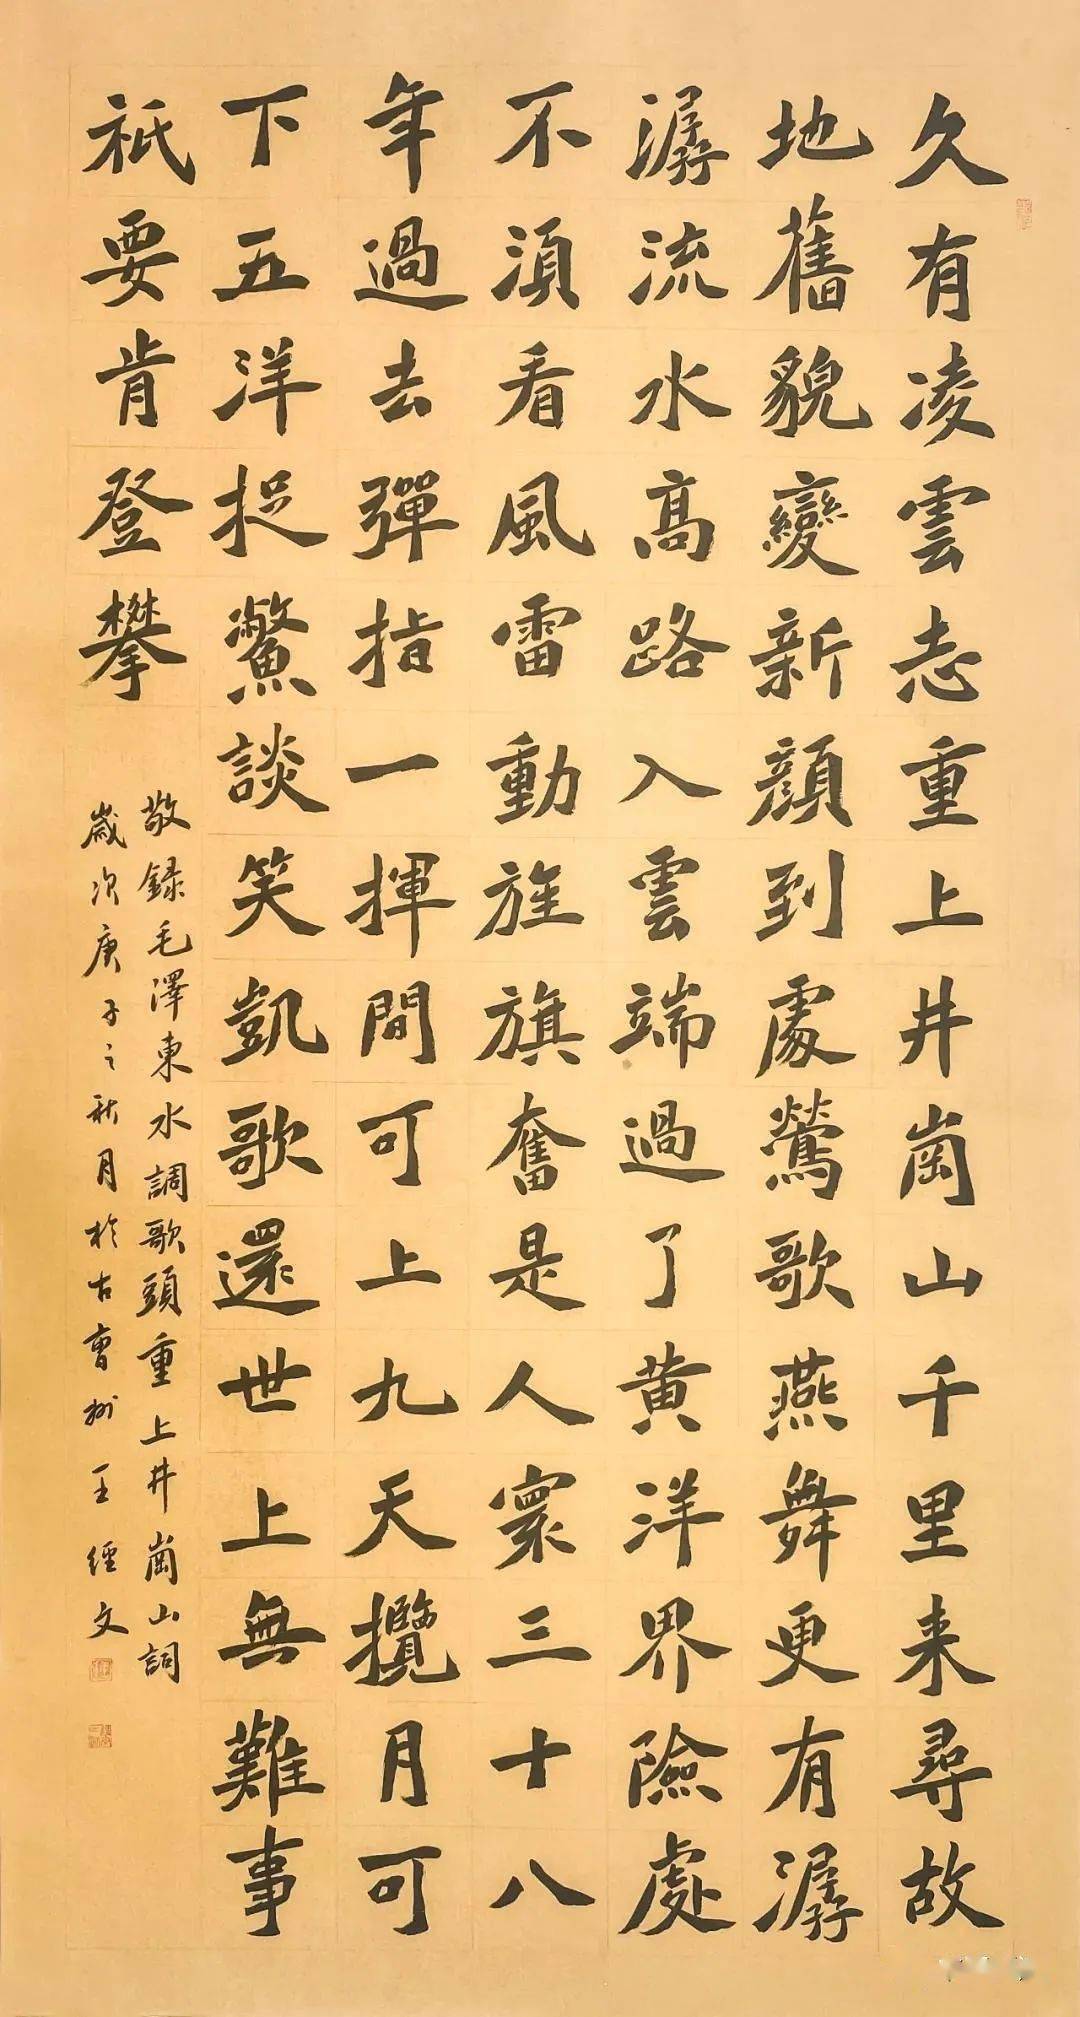 久有凌雲志重上井崗山千里来尋故
地舊貌變新顔到處鶯歌燕舞更有潺
潺流水高路入雲端過了黄洋界險處
不須看風雷動旌旗奮是人寰三十八
年過去彈指一揮間可上九天攬月可
下五洋捉鱉談笑凱歌還世上無難事
衹要肯登攀
敬録毛澤東水調歌頭重上井崗山詞
歲次庚子之秋月於古曹州王經文